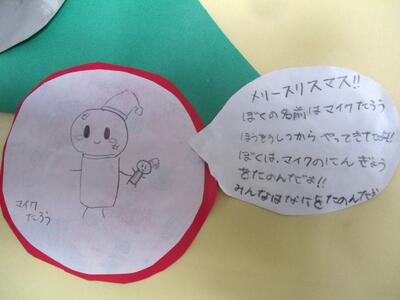 メリースリスマス!!
ぼくの名前はマイクたろう
ほうそうしつからやってきたよ!!
ぼくは、マイクのにんぎょう
をたのんだよ!!
みんなはなにをたのんだか
マイク
たろう